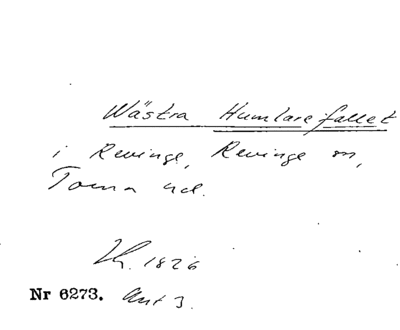 Wästra Humlarefallet
i Revinge, Revinge sn,
Torna hd.
1826
Nr 6273. Akt 3.